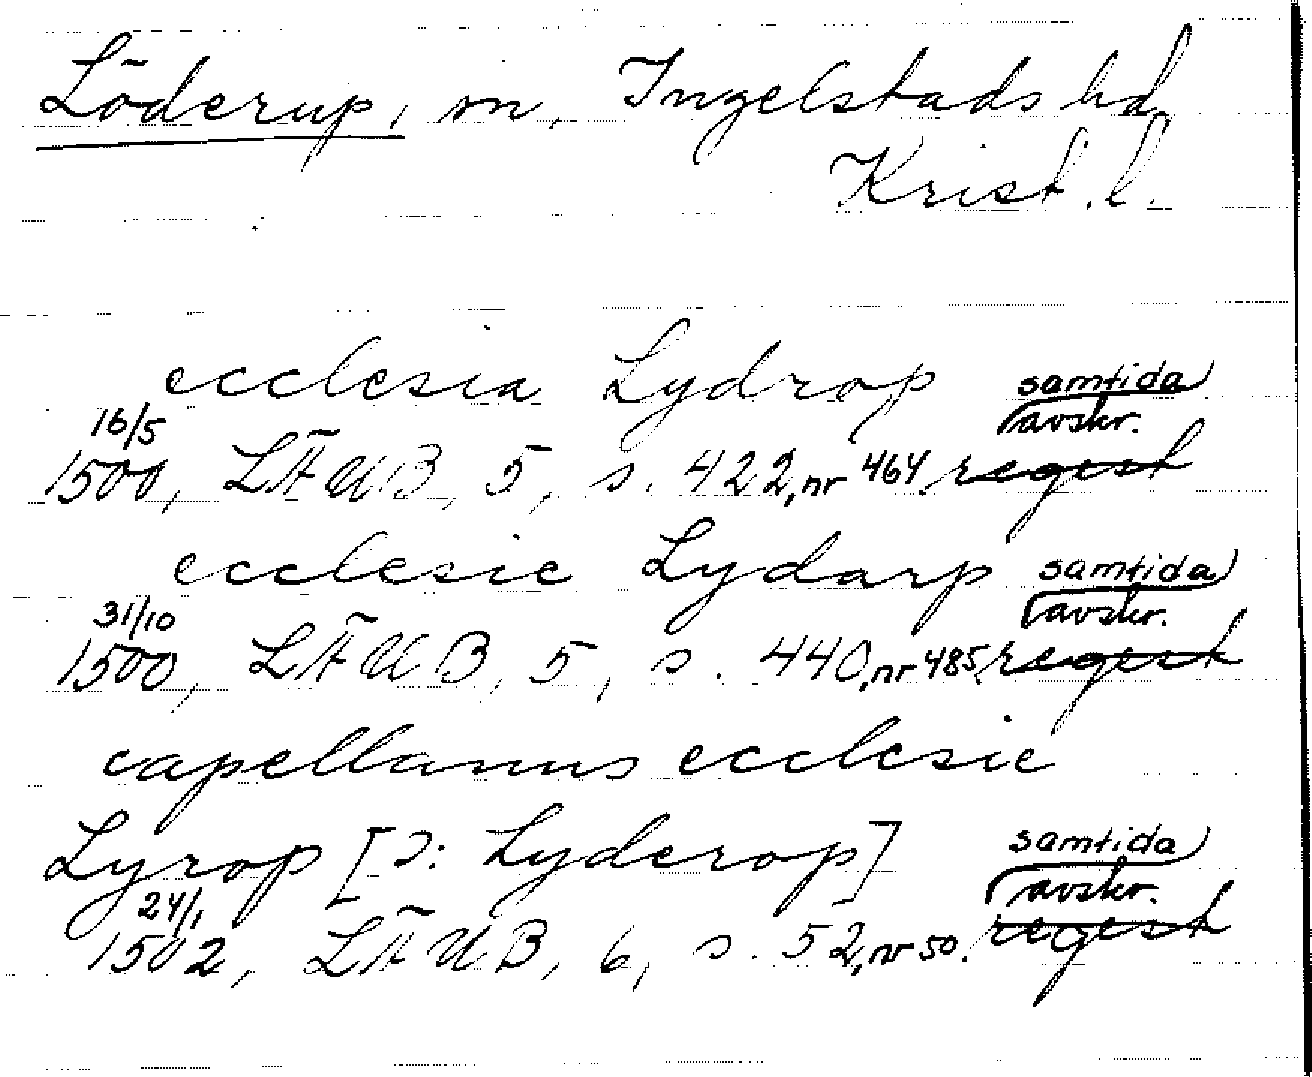 Löderup, sn, Ingelstads hd,
Krist. l.
ecclesia Lydrop samtida
16/5 avskr.
1500, LÄUB, 5, s. 422, nr 464, regest
ecclesie Lydarp samtida
31/10 avskr.
1500, LÄUB, 5, s. 440, nr 485, regest
capellanus ecclesie
Lyrop [ɔ: Lyderop] samtida
24/1 avskr.
1502, LÄUB, 6, s. 52, nr 50. regest